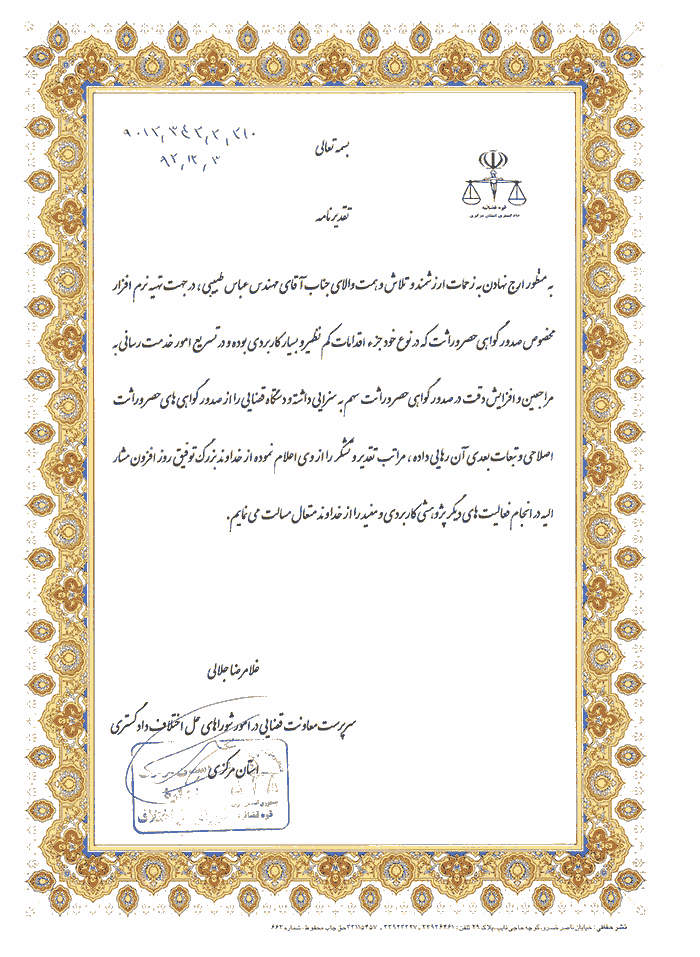 بسمه تعالی
۹۰۱۲٫۳۴۲٫۲٫۲۱۰
۹۲٫۱۲٫۳
قوه قضائیه
دادگستری استان مرکزی
تقدیرنامه
به منظور ارج نهادن به زحمات ارزشمند و تلاش و همت والای جناب آقای مهندس عباس طبیبی ، در جهت تهیه نرم افزار
مخصوص صدور گواهی حصر وراثت که در نوع خود جزء اقدامات کم نظیر و بسیار کاربردی بوده و در تسریع امور خدمت رسانی به
مراجعین و افزایش دقت در صدور گواهی حصر وراثت سهم به سزایی داشته و دستگاه قضایی را از صدور گواهی های حصر وراثت
اصلاحی و تبعات بعدی آن رهایی داده ، مراتب تقدیر و تشکر را از وی اعلام نموده از خداوند بزرگ توفیق روز افزون مشار
الیه در انجام فعالیت های دیگر پژوهشی کاربردی و مفید را از خداوند متعال مسالت می نمایم .
غلامرضا جلالی
سرپرست معاونت قضایی در امور شوراهای حل اختلاف دادگستری
استان مرکزی
قوه قضائیه
نشر حفاظی : خیابان ناصر خسرو، کوچه حاجی نایب، پلاک ۲۹ تلفن : ۳۳۹۲۶۴۶۱ ، ۳۳۹۲۳۳۲۷ ، ۳۳۱۱۵۴۵۷ حق چاپ محفوظ - شماره ۶۶۲